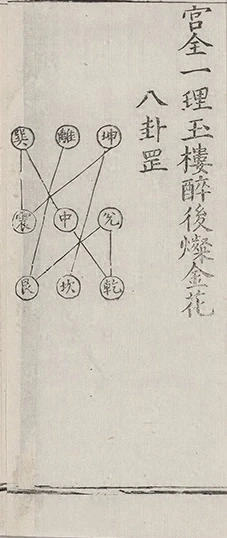 宮全一理玉樓醉後燦金花
八卦罡
巽離坤
震中兌
艮坎乾